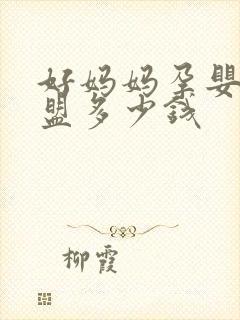 好妈妈孕婴
盟多少钱
柳霞